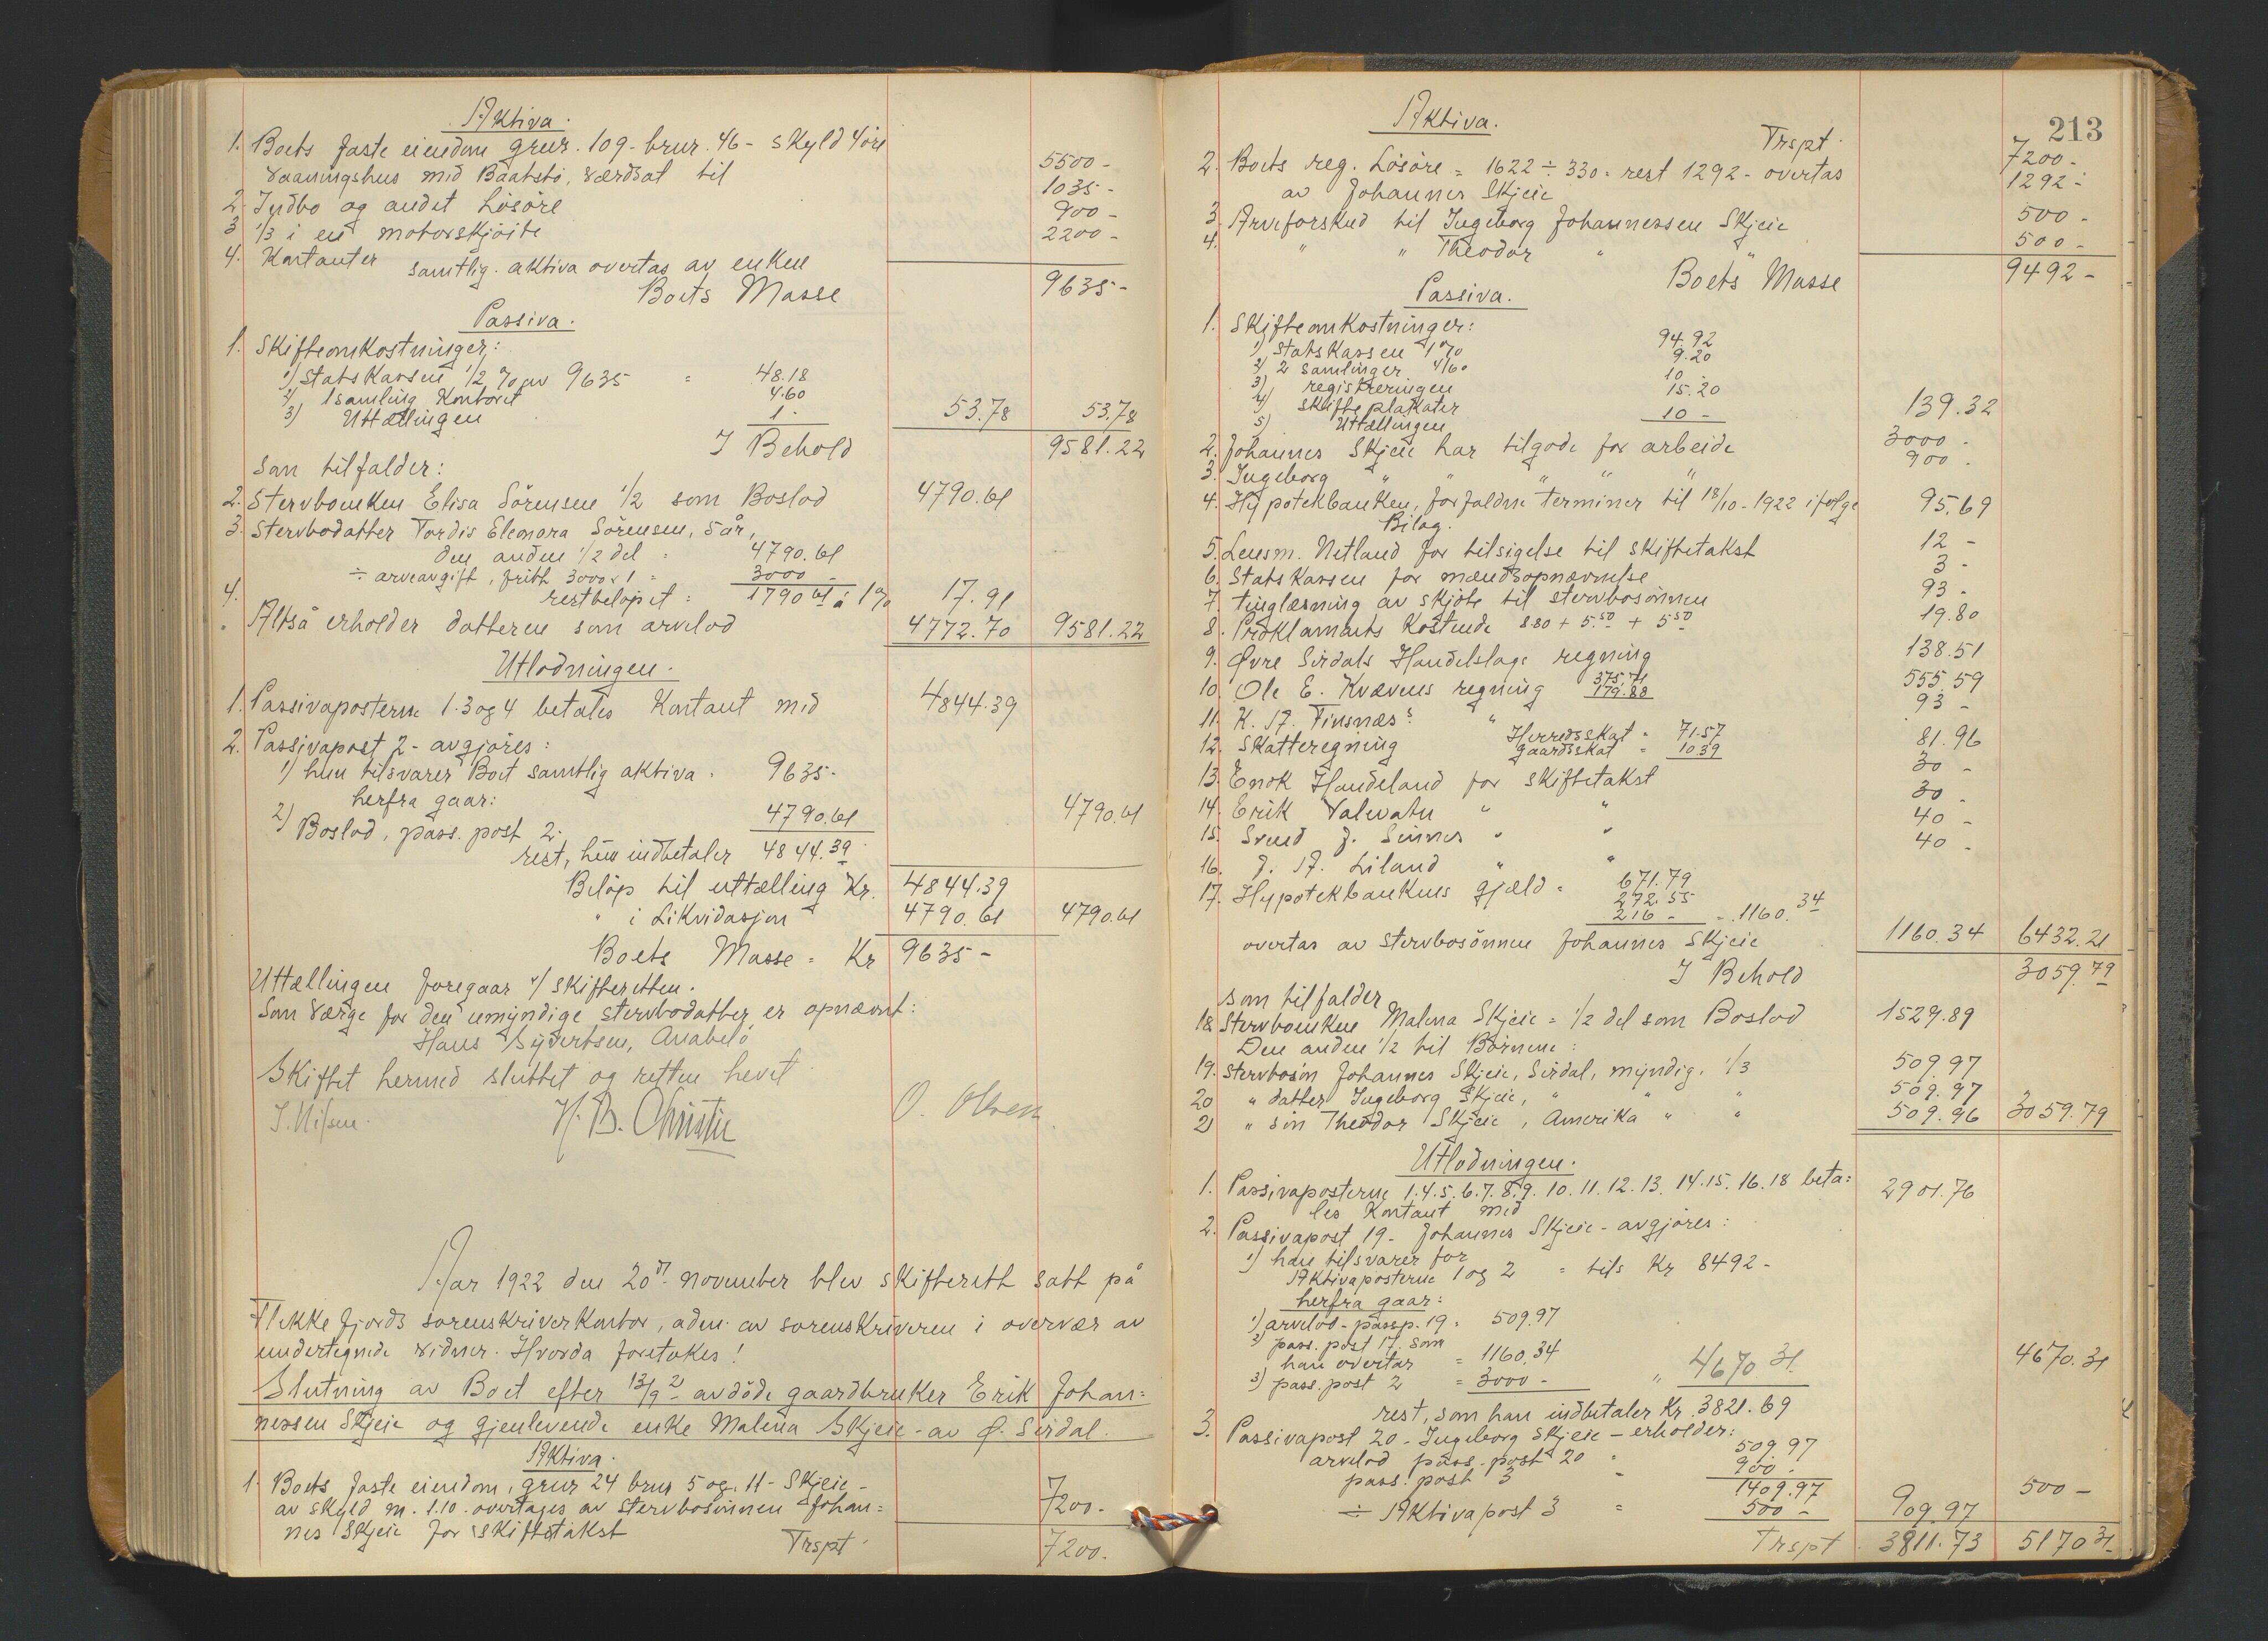 Aktiva.
1. Boets faste eiendom grnr. 109 - brnr. 46 - skyld 4 öre
Vaaningshus med Baatstö, værdsat til 5500 -
2. Indbo og andet Lösöre 1035 -
3 1/3 i en motorskjöite 900 -
4. Kontanter 2200 -
samtlig. aktiva overtas av enken
Boets Masse 9635 -
Passiva.
1. Skifteomkostninger:
1) Statskassen 1/2 % av 9635 = 48.18
2) 1 samling Kontoret 4.60
3) Uttællingen 1 - 53.78 53.78
I Behold 9581.22
som tilfalder:
2. Stervboenken Elisa Sörensen 1/2 som Boslod 4790.61
3. Stervbodatter Tordis Eleonora Sörensen, 5 år,
den anden 1/2 del = 4790.61
÷ arveavgift, fritt 3000 x 1 = 3000 -
4. restbelöpet = 1790 61 à 1% 17.91
Altså erholder datteren som arvelod 4772.70 9581.22
Utlodningen.
1. Passivaposterne 1.3 og 4 betales Kontant med 4844.39
2. Passivapost 2 - avgjöres:
1) hun tilsvarer Boet samtlig aktiva = 9635 -
herfra gaar:
2) Boslod, pass. post 2. 4790.61 4790.61
rest, hun indbetaler 4844.39
Belöp til uttælling Kr. 4844.39
" i Likvidasjon 4790.61 4790.61
Boets Masse = Kr 9635 -
Uttællingen foregaar v/ skifteretten.
Som Værge for den umyndige stervbodatter er opnævnt:
Hans Sÿvertsen, Anabelö
Skiftet hermed sluttet og retten hevet
J. Nilsen. H. B. Christie O. Olsen.
Aar 1922 den 20de november blev skifterett satt på
Flekkefjords sorenskriverkontor, adm. av sorenskriveren i overvær av
undertegnede vidner. Hvorda foretokes!
Slutning av Boet efter 13/9 21 avdöde gaardbruker Erik Johan=
nessen Skjeie og gjenlevende enke Malena Skjeie - av Ö. Sirdal.
Aktiva.
1. Boets faste eiendom, grnr 24 brnr 5 og 11 - Skjeie -
av skyld m. 1.10. overtages av stervbosönnen Johan= 7200 -
nes Skjeie for skiftetakst
Trspt 7200.
213
Aktiva.
Trspt. 7200 -
2. Boets reg. Lösöre = 1622 ÷ 330 = rest 1292 - overtas 1292 -
av Johannes Skjeie
3. Arveforskud til Ingeborg Johannessen Skjeie 500 -
4. " " Theodor " " 500 -
Boets Masse 9492 -
Passiva.
1. Skifteomkostninger:
1) Statskassen 1% 94.92
2) 2 samlinger 4/60 9.20
3) registreringen 10 -
4) skifteplakater 15.20
5) Uttællingen 10 - 139.32
2. Johannes Skjeie har tilgode for arbeide 3000 -
3. Ingeborg " " " " " 900 -
4. Hypotekbanken, forfaldne terminer til 18/10 - 1922 ifölge 95.69
Bilag.
5. Lensm. Netland for tilsigelse til skiftetakst 12 -
6. Statskassen for mændsopnævnelse 3 -
7. tinglæsning av skjöte til stervbosönnen 93 -
8. Proklamaets Kostende 8.80 + 5.50 + 5 50 19.80
9. Øvre Sirdals Handelslags regning 138.51
10. Ole E. Kvævens regning 375.71 179.88 555.59
11. K. A. Finsnæs's " 93 -
12. Skatteregning Herredsskat = 71.57
Gaardsskat = 10.39 81.96
13. Enok Haudeland for skiftetakst 30 -
14. Erik Valevatn " " 30 -
15. Svend J. Sinnes " " 40 -
16. J. A. Liland " " 40 -
17. Hypotekbankens gjæld = 671.79
272.55
216 - = 1160.34
overtas av stervbosönnen Johannes Skjeie 1160.34 6432.21
I Behold 3059.79
som tilfalder
18 Stervboenken Malena Skjeie = 1/2 del som Boslod 1529.89
Den anden 1/2 til Börnene:
19. Stervbosön Johannes Skjeie, Sirdal, myndig. 1/3 509.97
20 " datter Ingeborg Skjeie, " " " 509.97
21 " sön Theodor Skjeie, Amerika " " 509.96 3059.79
Utlodningen.
1. Passivaposterne 1.4.5.6.7.8.9.10.11.12.13.14.15.16.18 beta= 2901.76
les Kontant med
2. Passivapost 19 - Johannes Skjeie - avgjöres:
1) han tilsvarer for
Aktivaposterne 1 og 2 = tils Kr 8492 -
herfra gaar:
1) arvelod - passp. 19. 509.97
2) pass. post 17. som
han overtar = 1160.34
3) pass. post 2 = 3000 - " 4670 31 4670.31
rest, som han indbetaler Kr. 3821.69
3. Passivapost 20 - Ingeborg Skjeie - erholder:
arvelod pass. post 20 = 509.97
pass. post 3 - 900 -
1409.97
÷ Aktivapost 3 = 500 - 909.97 500 -
Trspt. 3811.73 5170 31